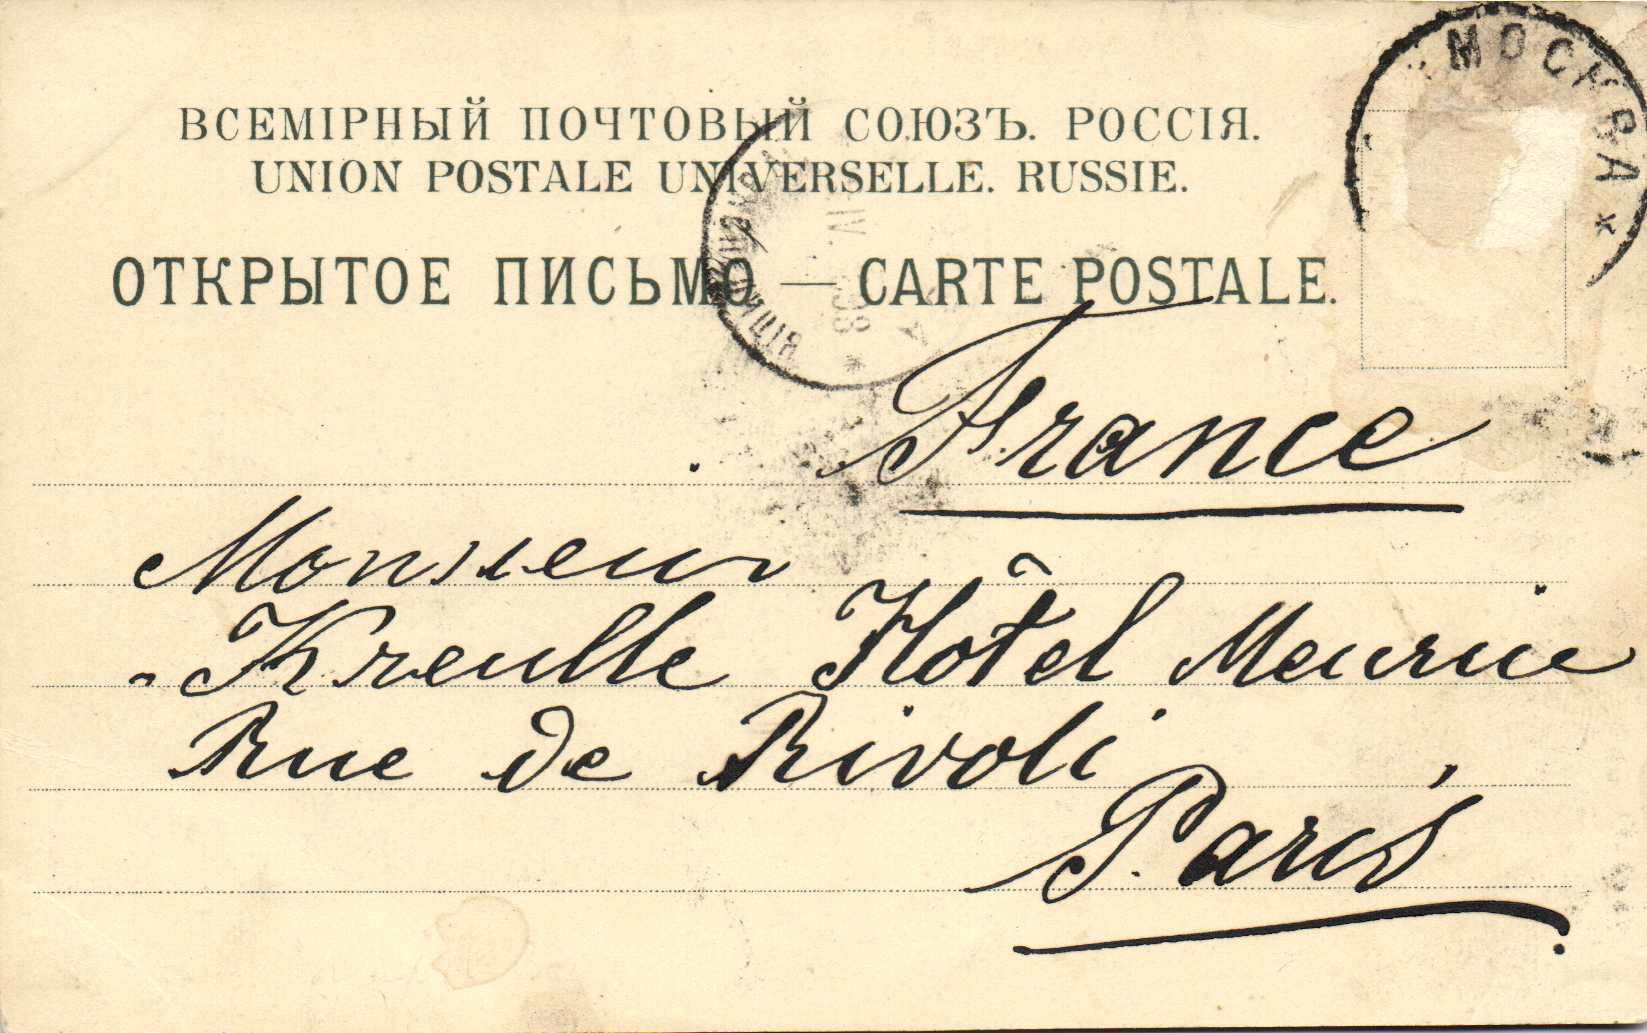 МОСКВА *
ВСЕМІРНЫЙ ПОЧТОВЫЙ СОЮЗЪ. РОССІЯ.
UNION POSTALE UNIVERSELLE. RUSSIE.
ОТКРЫТОЕ ПИСЬМО — CARTE POSTALE.
France
Monsieur
Kreulle Hôtel Meurice
Rue de Rivoli
Paris